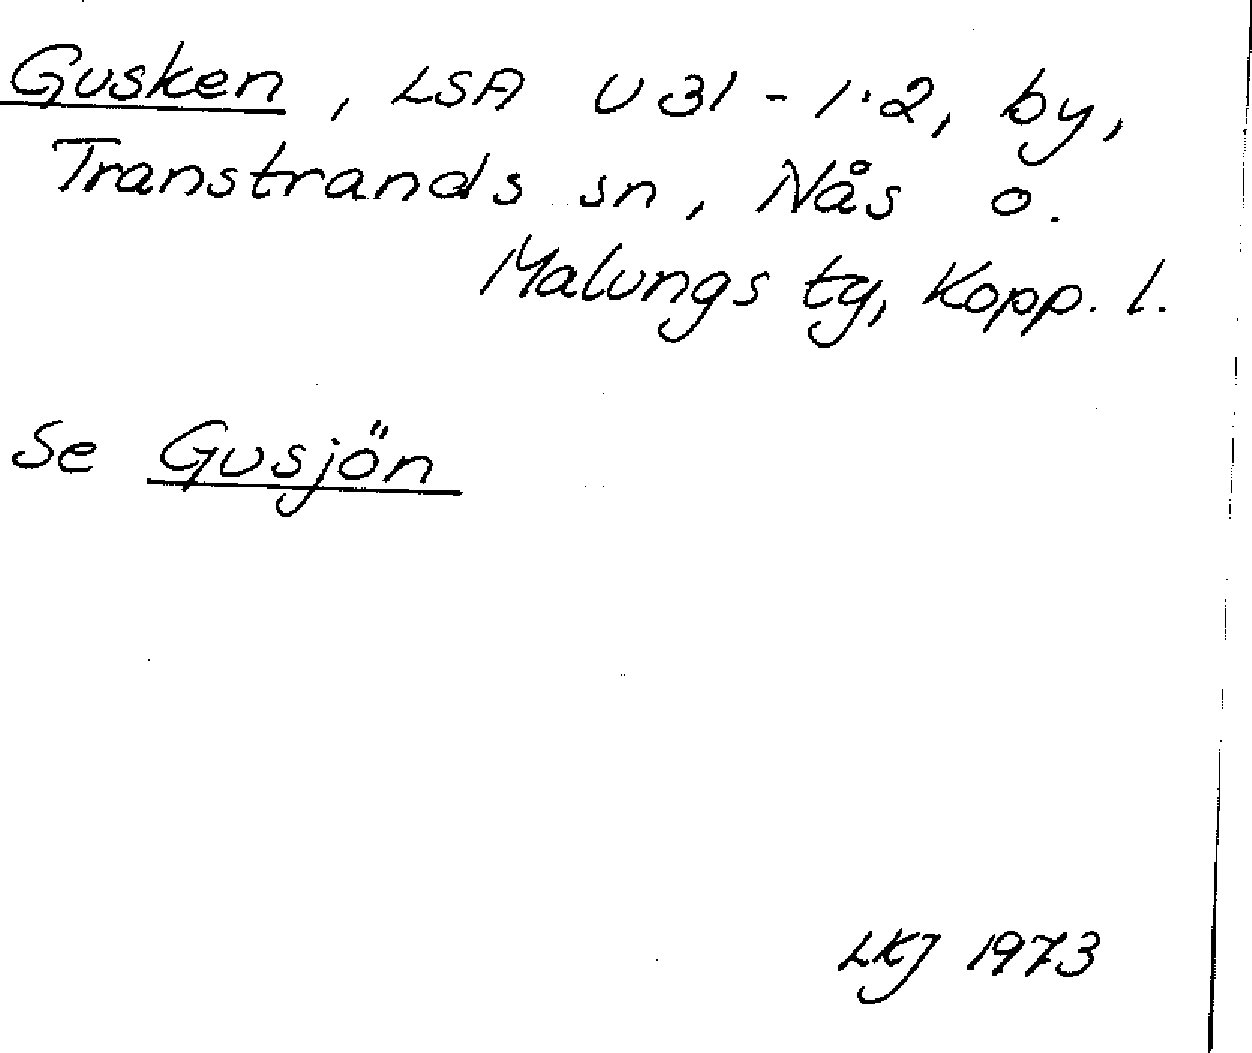 Gusken, LSA U 31 - 1:2, by,
Transtrands sn, Nås o.
Malungs tg, Kopp. l.
Se Gusjön
LKJ 1973